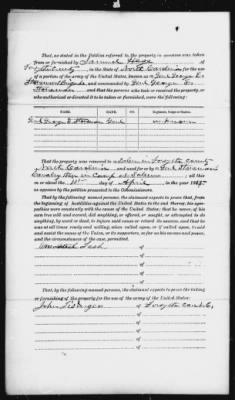 That, as stated in the petition referred to, the property in question was taken
from or furnished by Samuel Hege of
Forsyth county in the State of North Carolina for the use
of a portion of the army of the United States, known as Genl George
Stoneman Brigade and commanded by Genl George
Stoneman and that the persons who took or received the property, or
who authorized or directed it to be taken or furnished, were the following:
NAME. RANK. Regiment, Corps or Station.
Genl George Stoneman Genl unknown
That the property was removed to Salem in Forsyth county
North Carolina and used for or by Genl Stoneman
Cavalry then in Camp at Salem all this
on or about the 10th day of April in the year 1865
as appears by the petition presented to the Commissioners.
That by the following named persons, the claimant expects to prove that, from
the beginning of hostilities against the United States to the end thereof, his sym-
pathies were constantly with the cause of the United States; that he never, of his
own free will and accord, did anything, or offered, or sought, or attempted to do
anything, by word or deed, to injure said cause or retard its success, and that he
was at all times ready and willing, when called upon, or if called upon, to aid
and assist the cause of the Union, or its supporters, so far as his means and power, and
the circumstances of the case, permitted.
of
of
of
of
of
of
That by the following named persons, the claimant expects to prove the taking
or furnishing of the property for the use of the army of the United States:
John of Forsyth
of
of
of
of
of